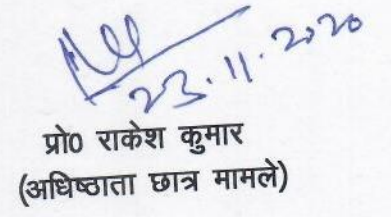 23.11.2020
प्रो0 राकेश कुमार
(अधिष्ठाता छात्र मामले)